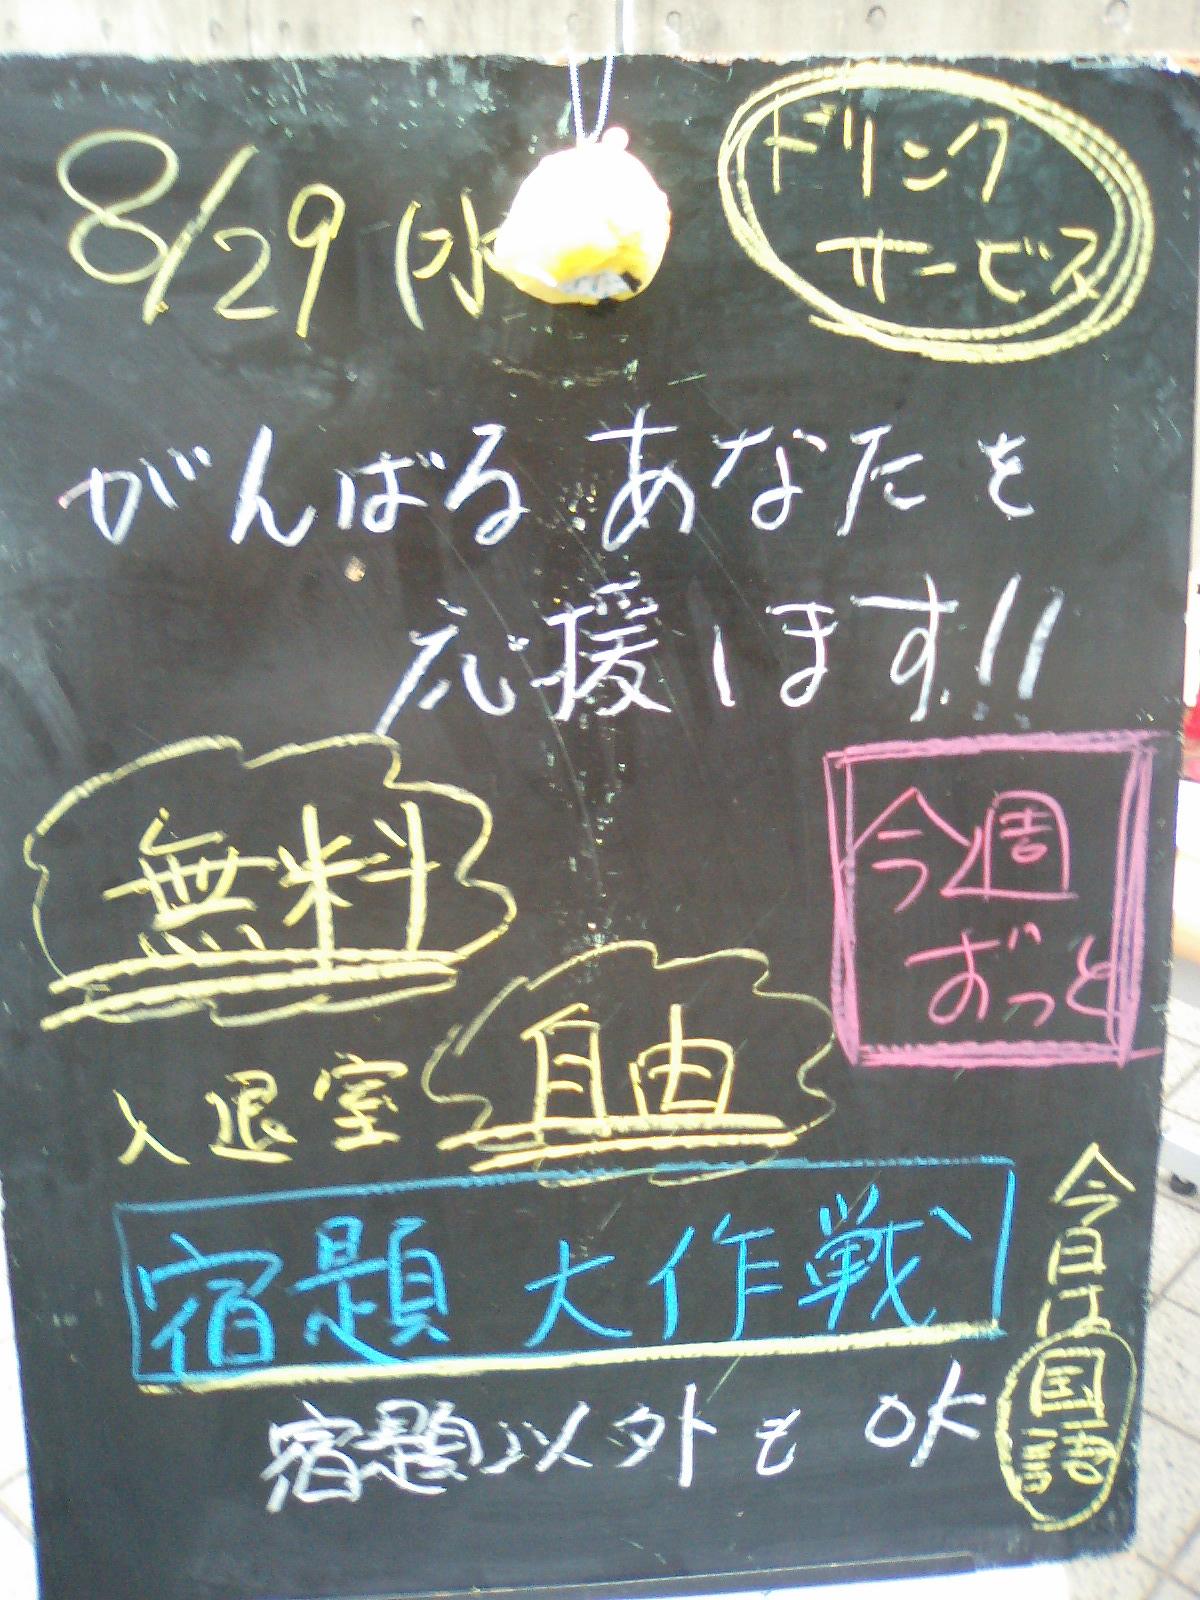 8/29 (水
ドリンク
サービス
がんばる あなたを
応援します!!
無料
今週
ずっと
入退室 自由
宿題 大作戦
今日は国語
宿題以外も OK